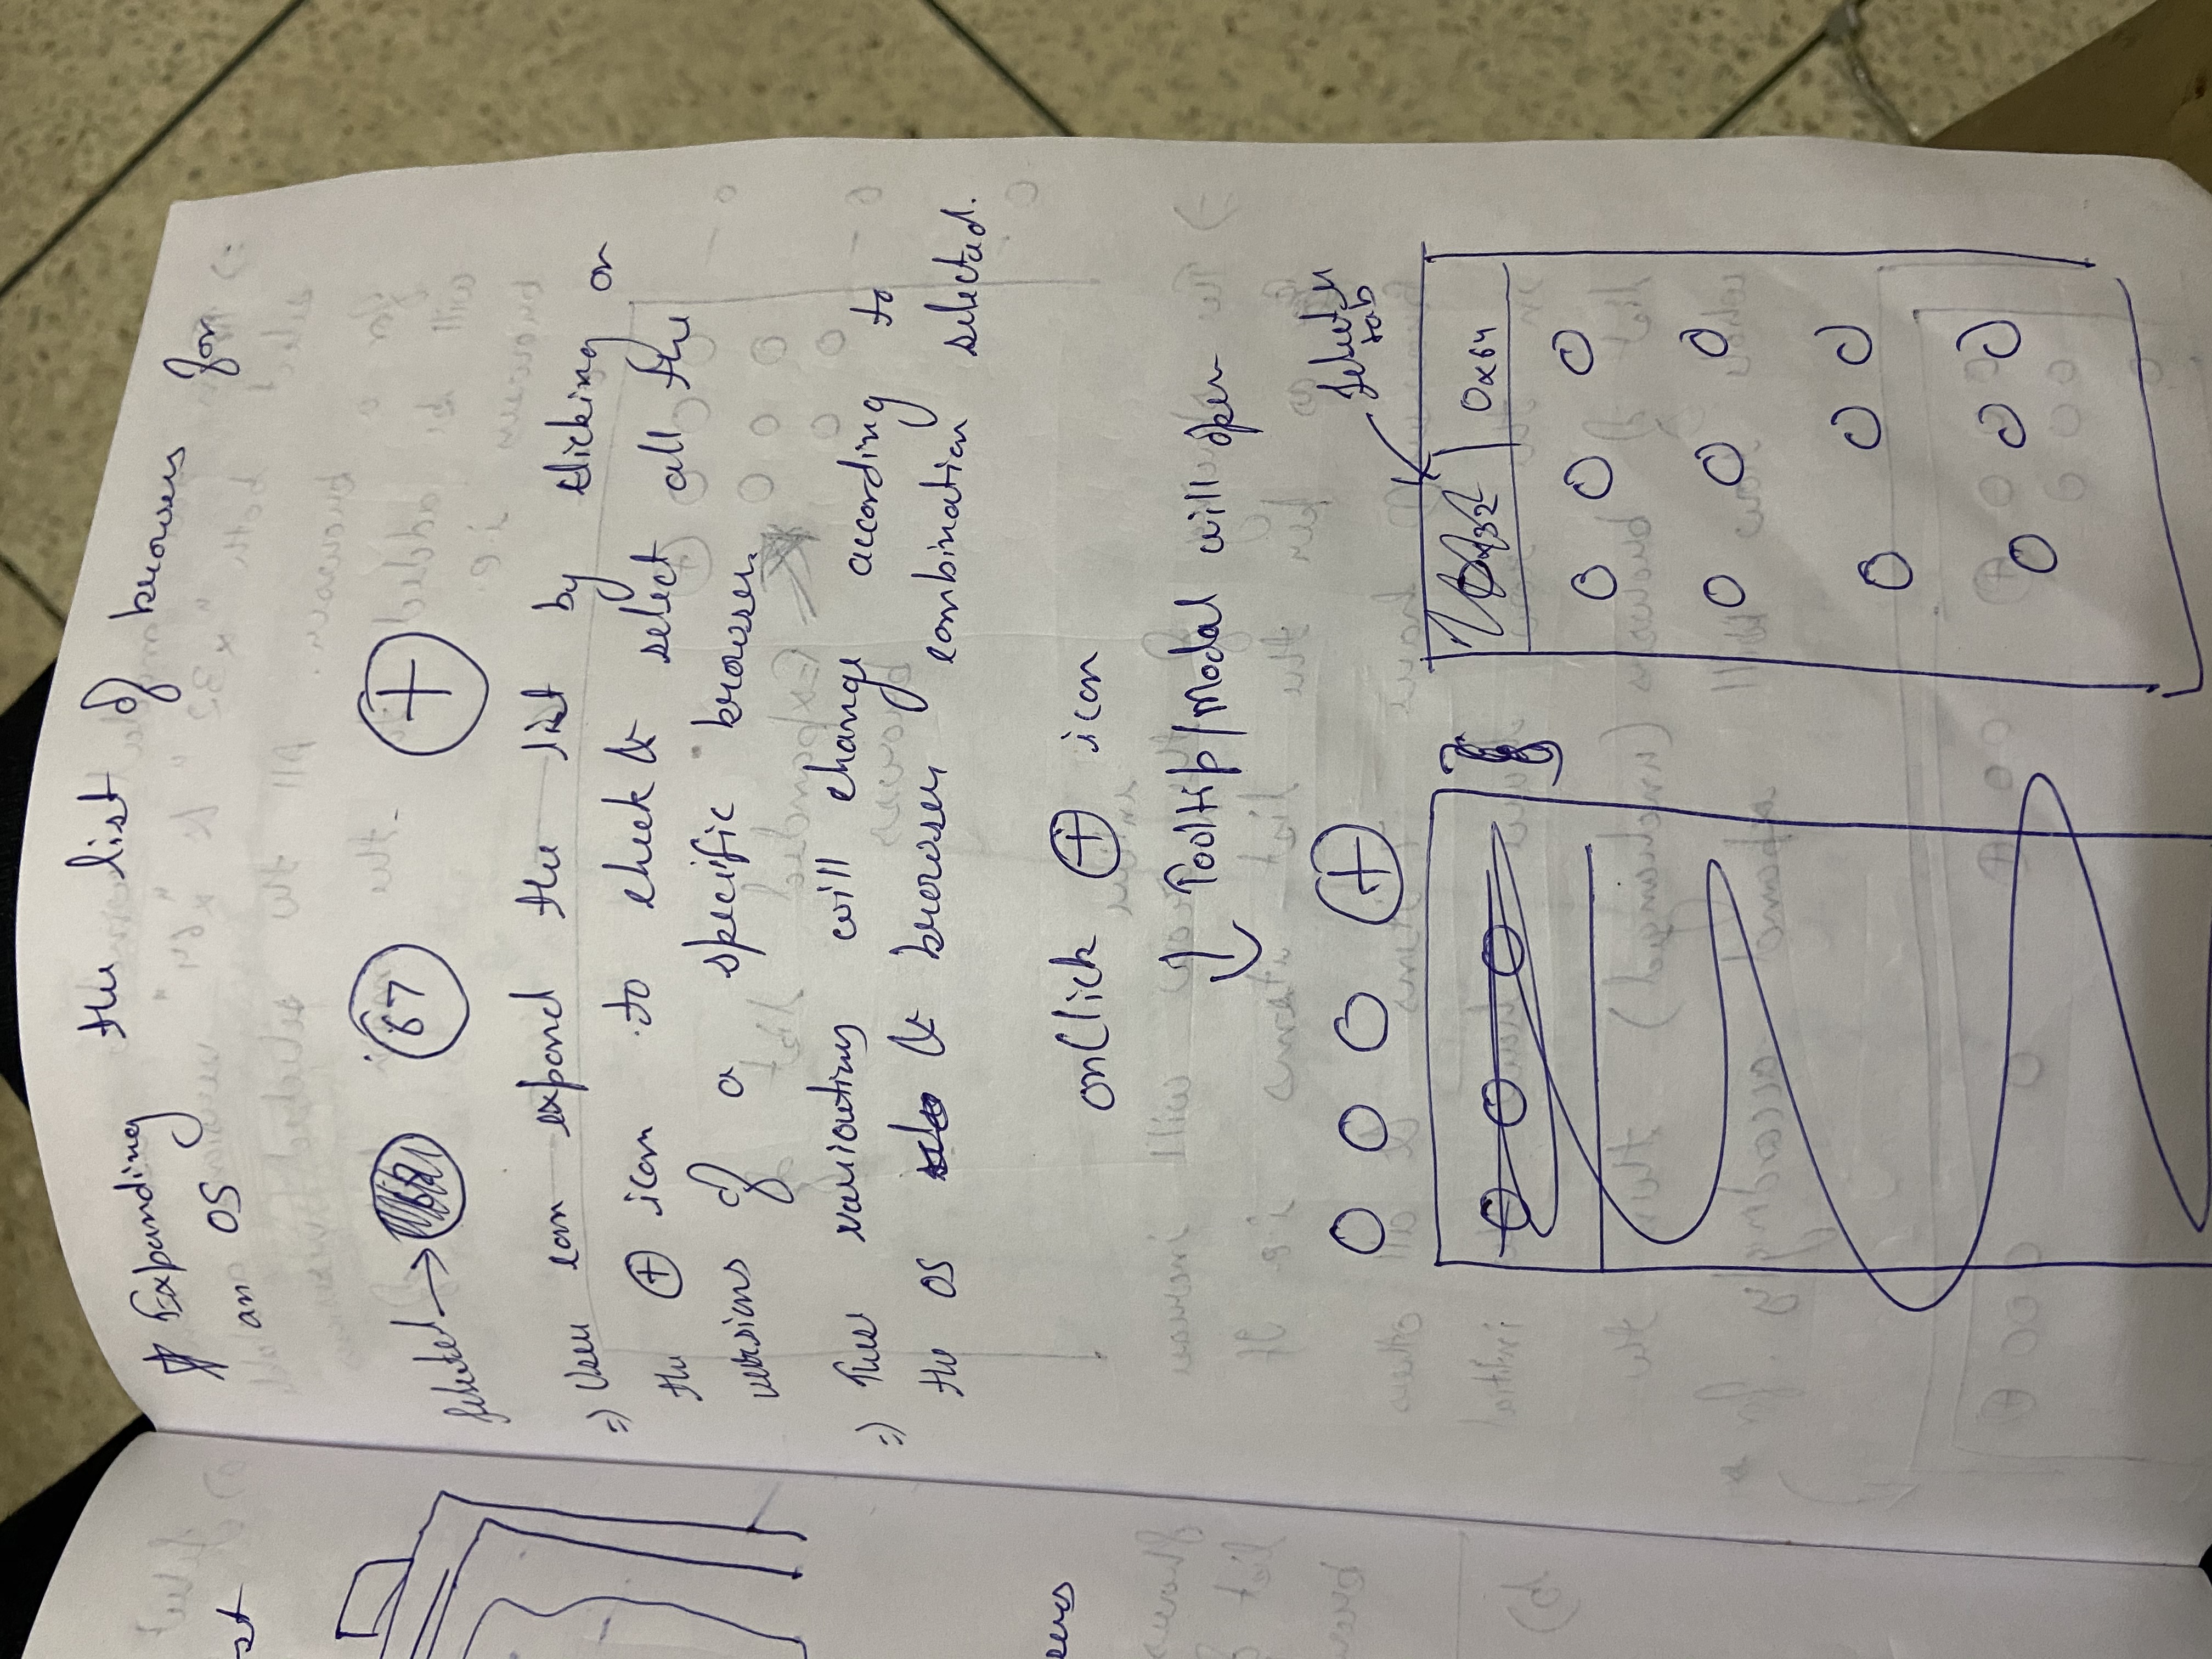 st
sers
# Expanding the list of browsers for
an OS
Selected → 67 +
=) User can expand the list by clicking on
the + icon to check & select all the
versions of a specific browser.
=) These variations will change according to
the OS & browser combination selected.
onClick + icon
↓ Tooltip/Modal will open
+
Selected
tab
0x32 0x64